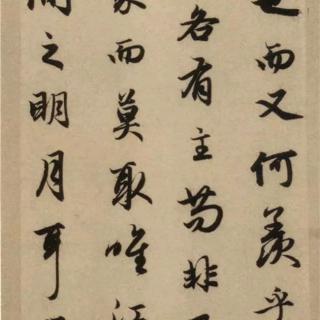 而又何羡乎
各有主苟非
而莫取唯江
間之明月耳